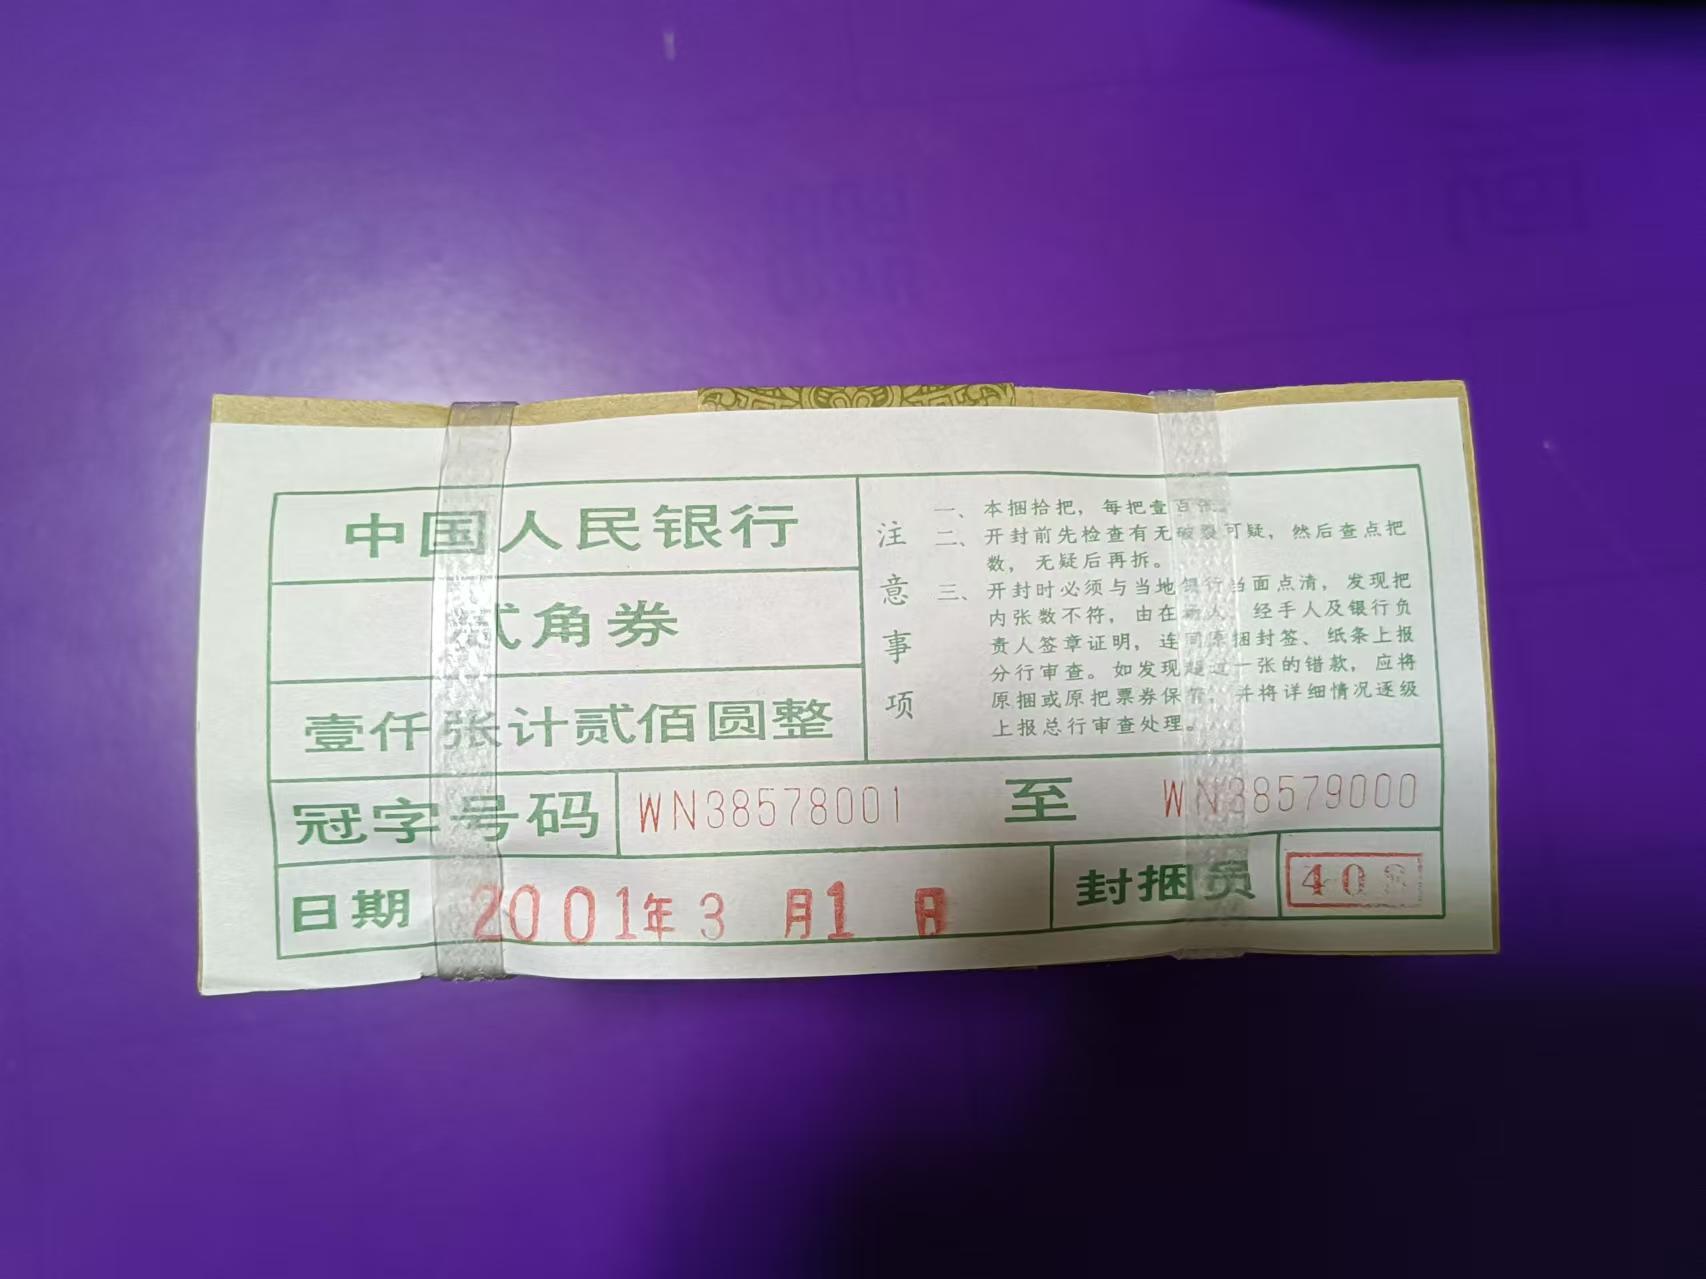 中国人民银行
贰角券
壹仟张计贰佰圆整
注意事项
一、本捆拾把，每把壹百张。
二、开封前先检查有无破裂可疑，然后查点把
数，无疑后再拆。
三、开封时必须与当地银行当面点清，发现把
内张数不符，由在场人、经手人及银行负
责人签章证明，连同原捆封签、纸条上报
分行审查。如发现超过一张的错款，应将
原捆或原把票券保存，并将详细情况逐级
上报总行审查处理。
冠字号码 WN38578001 至 WN38579000
日期 2001年3月1日 封捆员 408